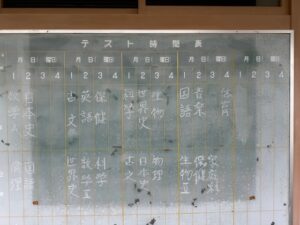 テスト時間表
月 日 曜日 月 日 曜日 月 日 曜日 月 日 曜日
1 2 3 4 1 2 3 4 1 2 3 4 1 2 3 4
日本史
古文
英語
保健
科学
世界史
生物
国語
音楽
体育
国語
世界史
数学Ⅱ
科学
日本史
物理
生物Ⅱ
保健
家庭科